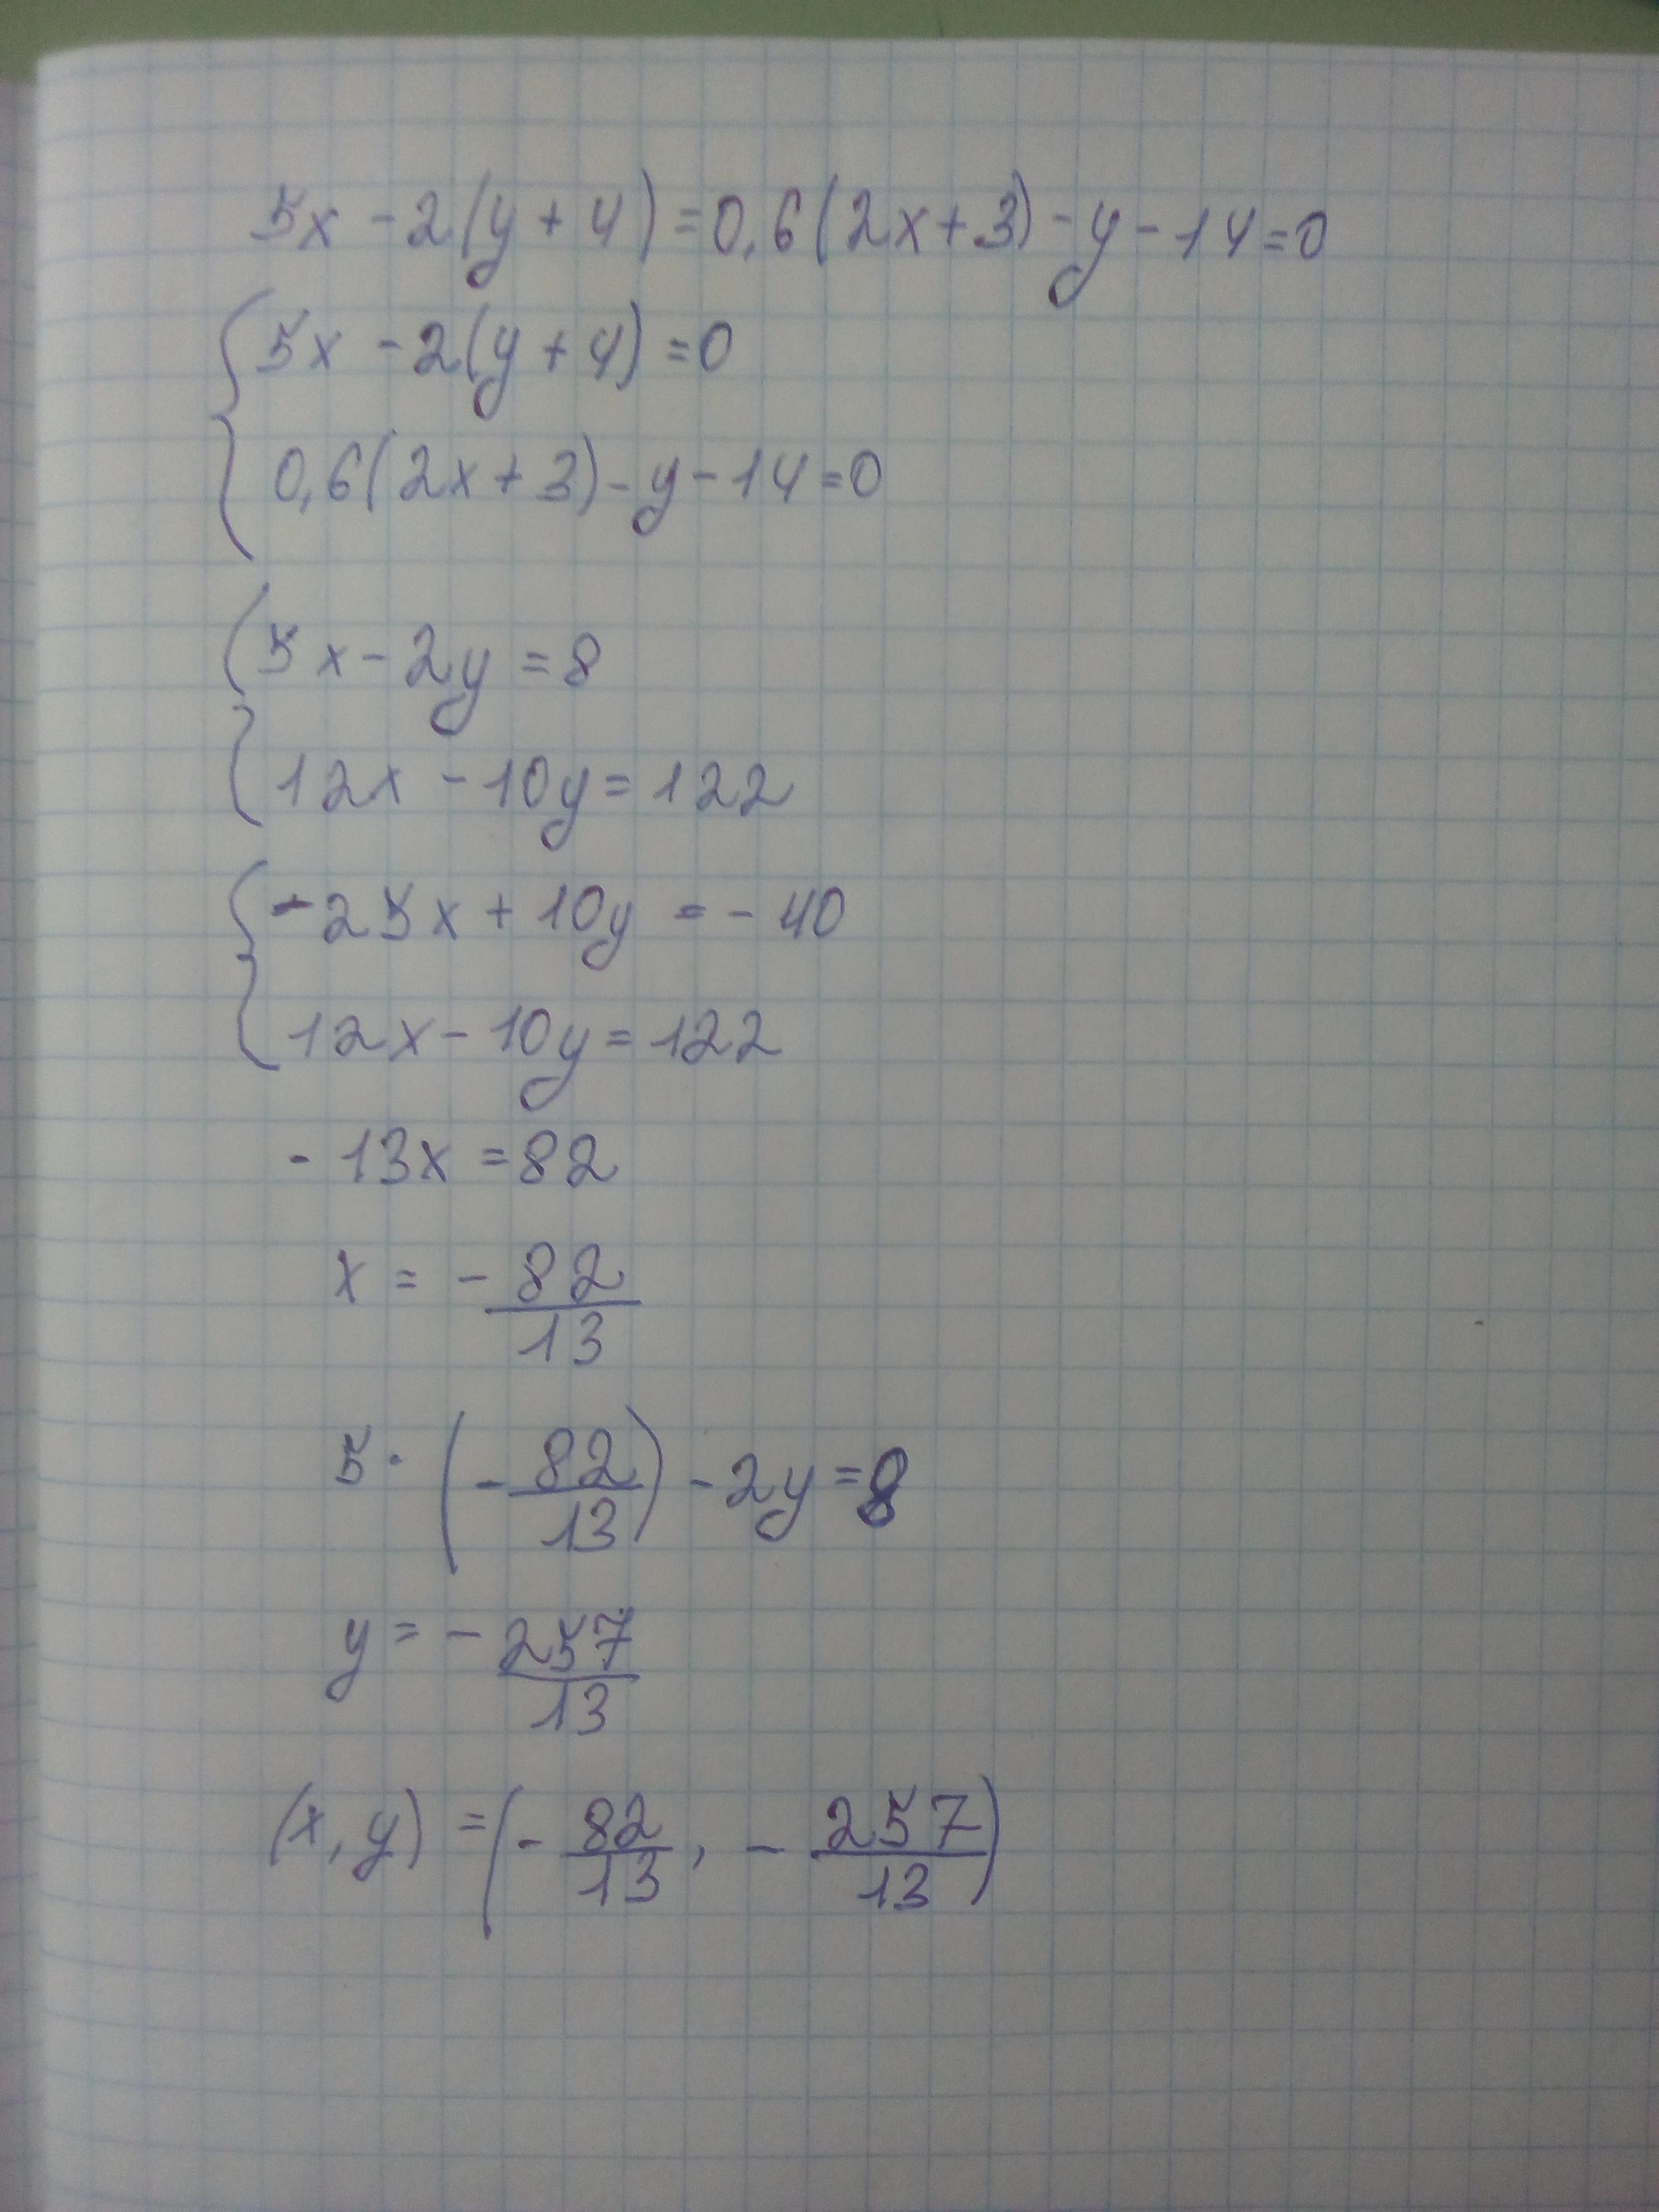 5x - 2(y + 4) = 0,6(2x + 3) - y - 14 = 0
5x - 2(y + 4) = 0
0,6(2x + 3) - y - 14 = 0
5x - 2y = 8
12x - 10y = 122
-25x + 10y = -40
12x - 10y = 122
-13x = 82
x = -82/13
5·(-82/13) - 2y = 8
y = -257/13
(x, y) = (-82/13, -257/13)